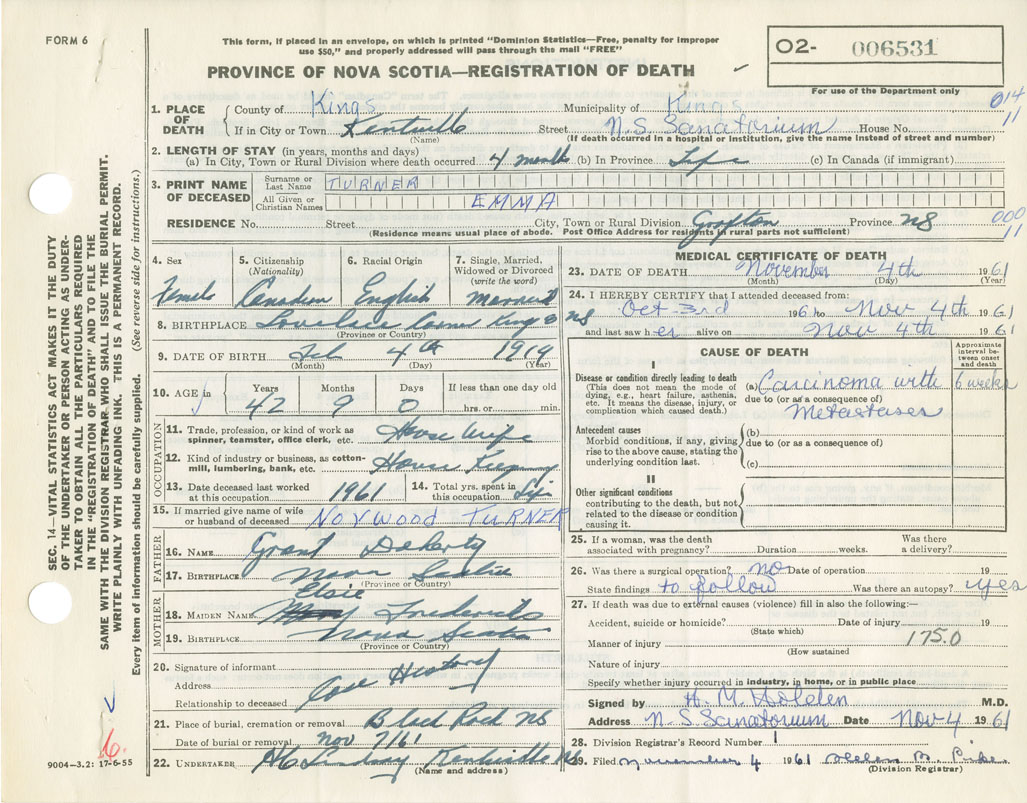 FORM 6
This form, if placed in an envelope, on which is printed "Dominion Statistics—Free, penalty for improper
use $50," and properly addressed will pass through the mail "FREE"
PROVINCE OF NOVA SCOTIA—REGISTRATION OF DEATH
02- 006531
For use of the Department only
014
11
1. PLACE OF DEATH County of Kings Municipality of Kings
If in City or Town Kentville Street N.S. Sanatorium House No.
(Name) (If death occurred in a hospital or institution, give the name instead of street and number)
2. LENGTH OF STAY (in years, months and days)
(a) In City, Town or Rural Division where death occurred 4 months (b) In Province Life (c) In Canada (if immigrant)
3. PRINT NAME OF DECEASED Surname or Last Name TURNER
All Given or Christian Names EMMA
RESIDENCE No. Street City, Town or Rural Division Grafton Province NS
(Residence means usual place of abode. Post Office Address for residents in rural parts not sufficient)
000
11
4. Sex Female
5. Citizenship (Nationality) Canadian
6. Racial Origin English
7. Single, Married, Widowed or Divorced (write the word) married
8. BIRTHPLACE Corner Kings NS
(Province or Country)
9. DATE OF BIRTH Feb 4th 1919
(Month) (Day) (Year)
10. AGE in Years Months Days If less than one day old
42 9 0 hrs. or min.
OCCUPATION
11. Trade, profession, or kind of work as spinner, teamster, office clerk, etc. House Wife
12. Kind of industry or business, as cotton-mill, lumbering, bank, etc. House Keeping
13. Date deceased last worked at this occupation 1961 14. Total yrs. spent in this occupation Life
15. If married give name of wife or husband of deceased NORWOOD TURNER
FATHER
16. NAME Grant Doherty
17. BIRTHPLACE Nova Scotia
(Province or Country)
MOTHER
18. MAIDEN NAME Elsie Fredericks
19. BIRTHPLACE Nova Scotia
(Province or Country)
20. Signature of informant
Address Case History
Relationship to deceased
21. Place of burial, cremation or removal Black Rock NS
Date of burial or removal Nov 7/61
22. UNDERTAKER Kentville NS
(Name and address)
MEDICAL CERTIFICATE OF DEATH
23. DATE OF DEATH November 4th 1961
(Month) (Day) (Year)
24. I HEREBY CERTIFY that I attended deceased from:
Oct-3rd 1961 to Nov 4th 1961
and last saw her alive on Nov 4th 1961
CAUSE OF DEATH
Approximate interval between onset and death
I
Disease or condition directly leading to death
(This does not mean the mode of dying, e.g., heart failure, asthenia, etc. It means the disease, injury, or complication which caused death.)
(a) Carcinoma with 6 weeks
due to (or as a consequence of)
Metastases
Antecedent causes
Morbid conditions, if any, giving rise to the above cause, stating the underlying condition last.
(b)
due to (or as a consequence of)
(c)
II
Other significant conditions
contributing to the death, but not related to the disease or condition causing it.
25. If a woman, was the death associated with pregnancy? Duration weeks. Was there a delivery?
26. Was there a surgical operation? no Date of operation 19
State findings to follow Was there an autopsy? yes
27. If death was due to external causes (violence) fill in also the following:—
Accident, suicide or homicide? Date of injury 19
(State which)
Manner of injury 175.0
(How sustained
Nature of injury
Specify whether injury occurred in industry, in home, or in public place
Signed by H. M. Holden M.D.
Address N-S Sanatorium Date Nov 4 1961
28. Division Registrar's Record Number 1
29. Filed November 4 1961 Helen B.
(Division Registrar)
SEC. 14—VITAL STATISTICS ACT MAKES IT THE DUTY
OF THE UNDERTAKER OR PERSON ACTING AS UNDER-
TAKER TO OBTAIN ALL THE PARTICULARS REQUIRED
IN THE "REGISTRATION OF DEATH" AND TO FILE THE
SAME WITH THE DIVISION REGISTRAR WHO SHALL ISSUE THE BURIAL PERMIT.
WRITE PLAINLY WITH UNFADING INK. THIS IS A PERMANENT RECORD.
Every item of information should be carefully supplied. (See reverse side for instructions.)
6.
9004—3.2: 17-6-55